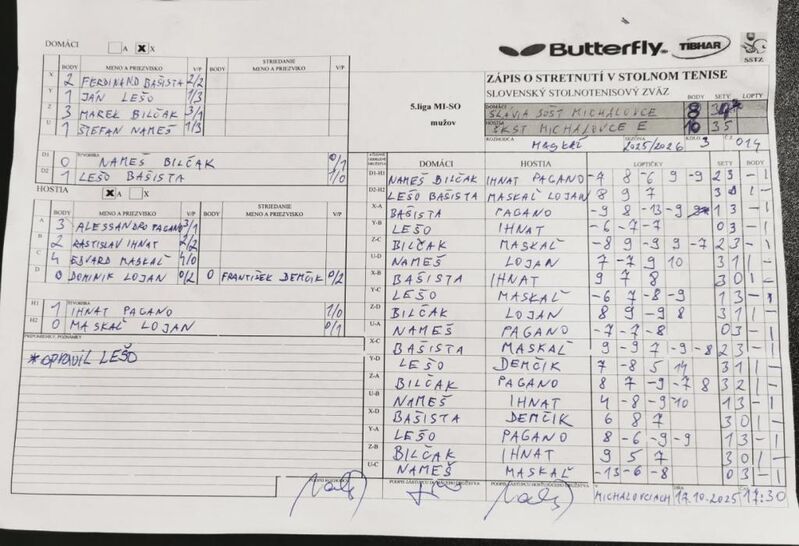 Butterfly. TIBHAR SSTZ
ZÁPIS O STRETNUTÍ V STOLNOM TENISE
SLOVENSKÝ STOLNOTENISOVÝ ZVÄZ
DOMÁCI A X X
BODY MENO A PRIEZVISKO V/P BODY STRIEDANIE MENO A PRIEZVISKO V/P
X 2 FERDINAND BAŠISTA 2/2
Y 1 JÁN LEŠO 1/3
Z 3 MAREK BILČAK 3/1
U 1 ŠTEFAN NAMEŠ 1/3
ŠTVORHRA
D1 0 NAMEŠ BILČAK 0/1
D2 1 LEŠO BAŠISTA 1/0
HOSTIA A X X
BODY MENO A PRIEZVISKO V/P BODY STRIEDANIE MENO A PRIEZVISKO V/P
A 3 ALESSANDRO PAGANO 3/1
B 2 RASTISLAV IHNAT 2/2
C 4 EDVARD MASKAĽ 4/0
D 0 DOMINIK LOJAN 0/2 0 FRANTIŠEK DEMČIK 0/2
ŠTVORHRA
H1 1 IHNAT PAGANO 1/0
H2 0 MASKAĽ LOJAN 0/1
PRIPOMIENKY, POZNÁMKY
*OPRAVIL LEŠO
5.liga MI-SO
mužov
BODY SETY LOPTY
DOMÁCI SLÁVIA ŠOŠT MICHALOVCE 8
HOSTIA ČKST MICHALOVCE E 10 35
ROZHODCA MASKAĽ SEZÓNA 2025/2026 KOLO 3 Č.Z. 014
DOMÁCI HOSTIA LOPTIČKY SETY BODY
D1-H1 NAMEŠ BILČAK IHNAT PAGANO -4 8 -6 9 -9 2 3 - 1
D2-H2 LEŠO BAŠISTA MASKAĽ LOJAN 8 9 7 3 1 -
X-A BAŠISTA PAGANO -9 8 -13 -9 1 3 - 1
Y-B LEŠO IHNAT -6 -7 -7 0 3 - 1
Z-C BILČAK MASKAĽ -8 9 -9 9 -7 2 3 - 1
U-D NAMEŠ LOJAN 7 -7 9 10 3 1 1 -
X-B BAŠISTA IHNAT 9 7 8 3 0 1 -
Y-C LEŠO MASKAĽ -6 7 -8 -9 1 3 - 1
Z-D BILČAK LOJAN 8 9 -9 8 3 1 1 -
U-A NAMEŠ PAGANO -7 -7 -8 0 3 - 1
X-C BAŠISTA MASKAĽ 9 -9 7 -9 -8 2 3 - 1
Y-D LEŠO DEMČIK 7 -8 5 14 3 1 1 -
Z-A BILČAK PAGANO 8 7 -9 -7 8 3 2 1 -
U-B NAMEŠ IHNAT 4 -8 -9 -10 1 3 - 1
X-D BAŠISTA DEMČIK 6 8 7 3 0 1 -
Y-A LEŠO PAGANO 8 -6 -9 -9 1 3 - 1
Z-B BILČAK IHNAT 9 5 7 3 0 1 -
U-C NAMEŠ MASKAĽ -13 -6 -8 0 3 - 1
PODPIS ROZHODCU PODPIS ZÁSTUPCU DOMÁCEHO DRUŽSTVA PODPIS ZÁSTUPCU HOSŤUJÚCEHO DRUŽSTVA V MICHALOVCIACH DŇA 17.10.2025 17:30